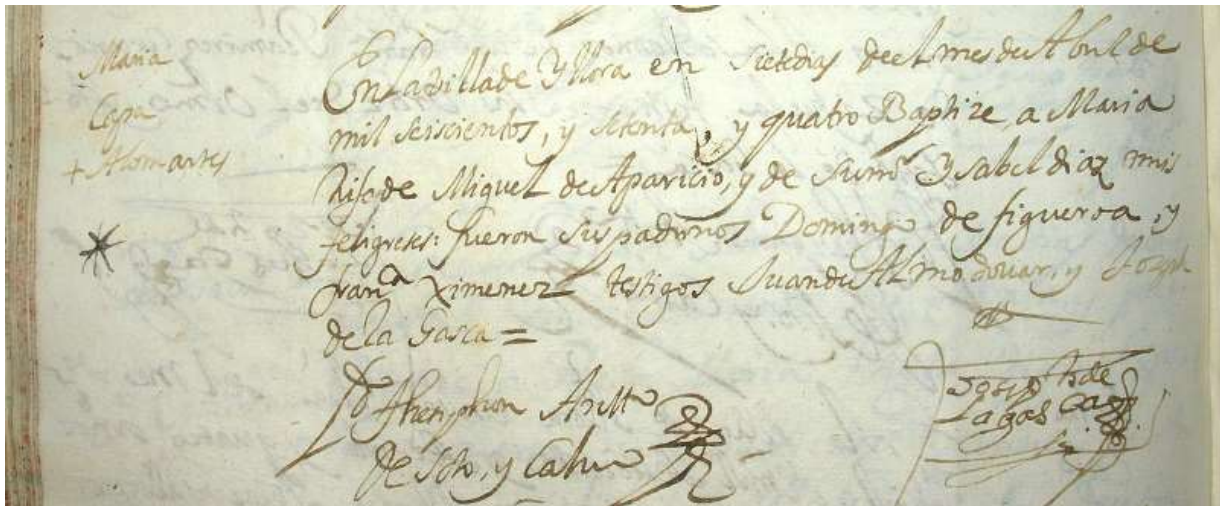 Maria
+ Alomartes
En la villa de Yllora en siete dias del mes de Abril de
mil seiscientos, y setenta, y quatro Baptize a Maria
hija de Miguel de Aparicio, y de su mr Ysabel diaz mis
feligreses: fueron sus padrinos Domingo de figueroa, y
franca Ximenez testigos Juan de Almodouar, y Joseph
de la Gasca =
de Soto, y Calvo
Joseph de
la gasca